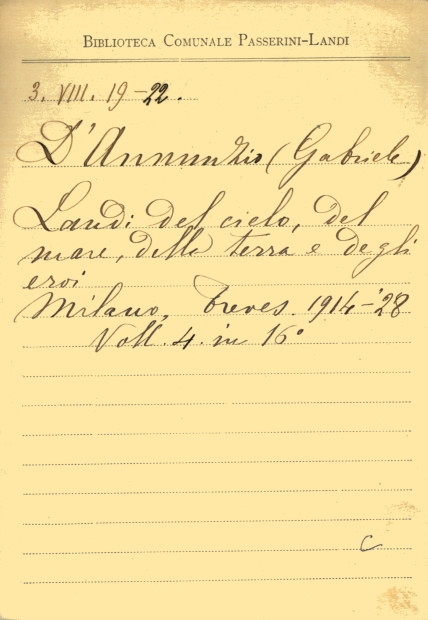 BIBLIOTECA COMUNALE PASSERINI-LANDI
3. VIII. 19-22.
D'Annunzio (Gabriele)
Laudi del cielo, del
mare, della terra e degli
eroi
Milano, Treves. 1914-'28
Voll. 4. in 16°
C